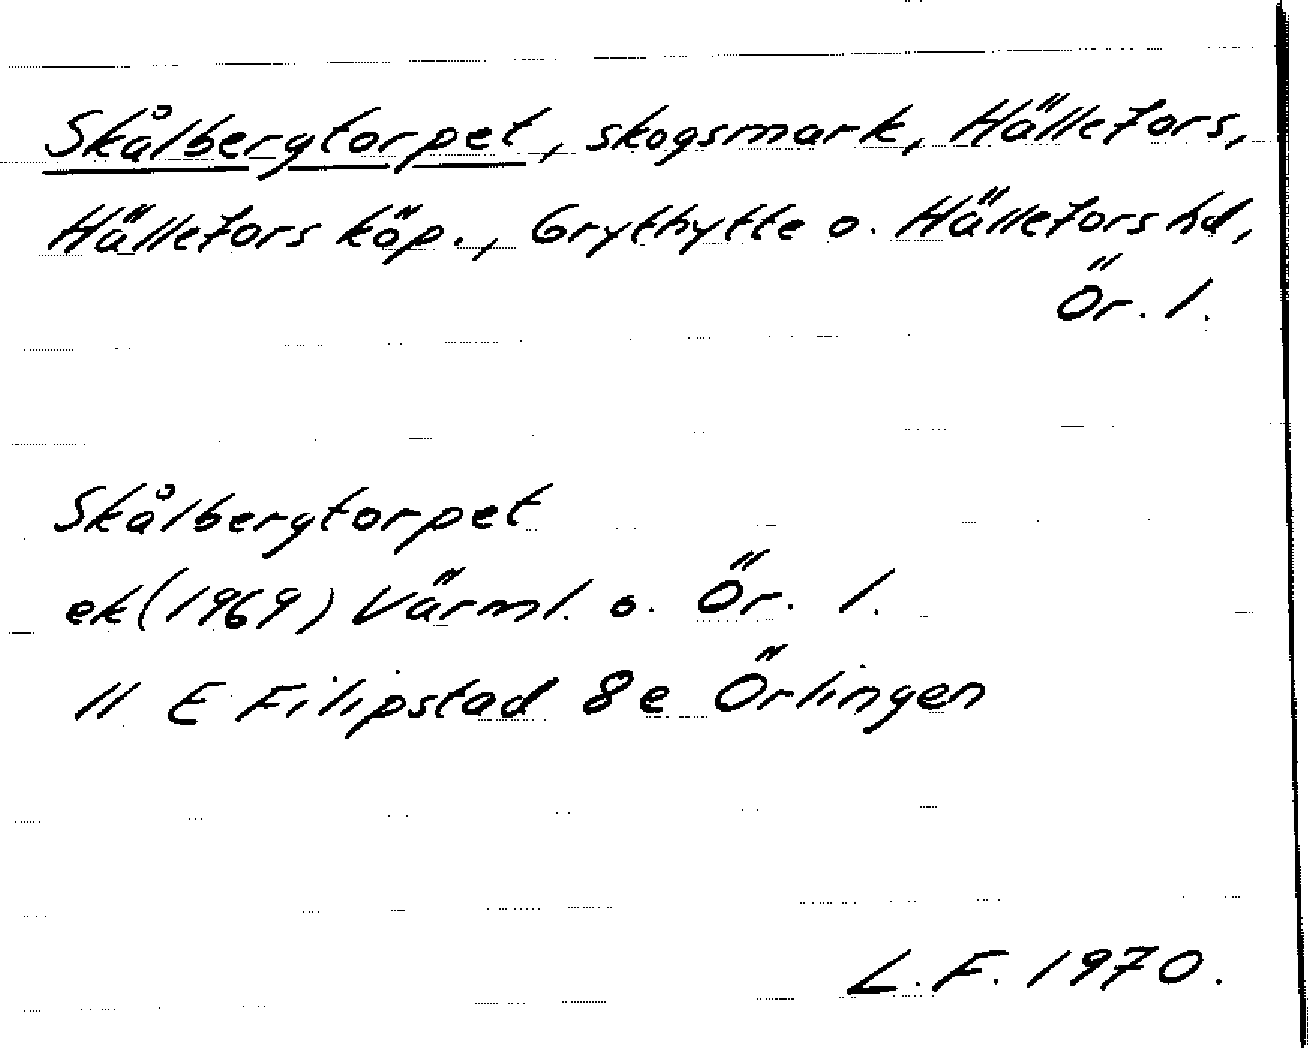 Skålbergtorpet, skogsmark, Hällefors,
Hällefors köp., Grythytte o. Hällefors hd,
Ör. l.
Skålbergtorpet
ek (1969) Värml. o. Ör. l.
11 E Filipstad 8e Örlingen
L.F. 1970.